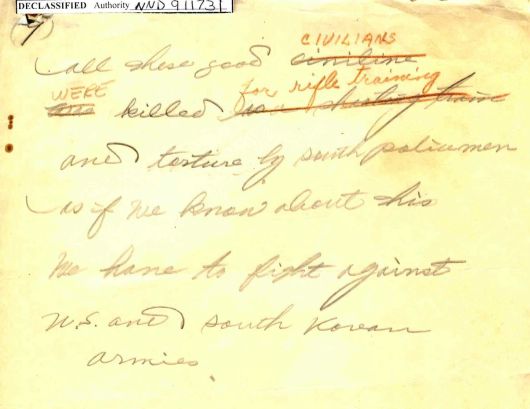 DECLASSIFIED Authority NND 911731
(9)
CIVILIANS
all these good civiline
WERE for rifle training
are killed as a shooting traine
and torture by south policemen
as if we know about this
We have to fight against
U.S. and south Korean
armies